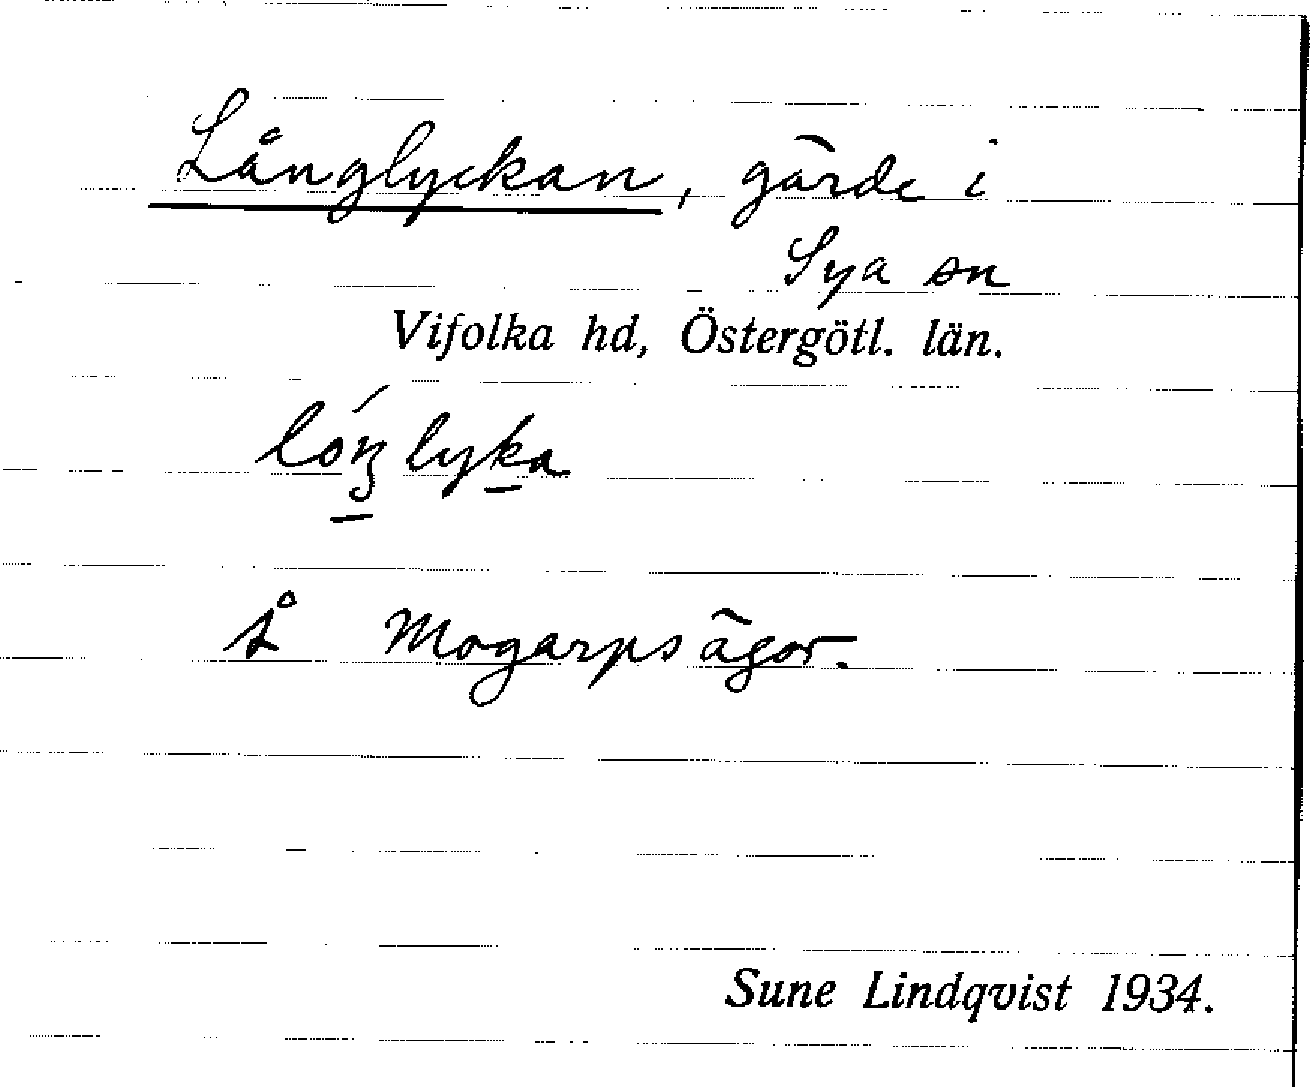 Långlyckan, gärde i
Sya sn
Vifolka hd, Östergötl. län.
lóŋlyka
Å Mogarps ägor.
Sune Lindqvist 1934.